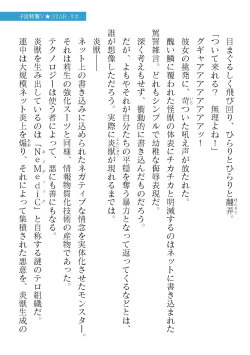 目まぐるしく飛び回り、ひらりとひらりと翻弄。
「ついて来れる？　無理よね！」
グギャアアアアアアアッ！
彼女の挑発に、苛ついた吼え声が放たれた。
醜い鱗に覆われた怪獣の体表にチカチカと明滅するのはネットに書き込まれた
罵詈雑言。どれもシンプルで幼稚な侮辱表現だ。
深く考えもせず、衝動的に書き込んだものだろう。
だが、よもやそれが自分たちの平穏を奪う暴力となって返ってくるなどとは、
誰が想像しただろう。実際に炎獣が現れるまでは。
炎獣――
ネットの書き込みに込められたネガティブな情念を実体化させたモンスター。
それは将生の強化スーツと同様、情報物質化技術の産物であった。
テクノロジーは使う者によって、悪にも善にもなる。
炎獣を生み出しているのは「NeMediC」と自称する謎のテロ組織だ。
連中は大規模ネット炎上を煽り、それによって集積された悪意を、炎獣生成の